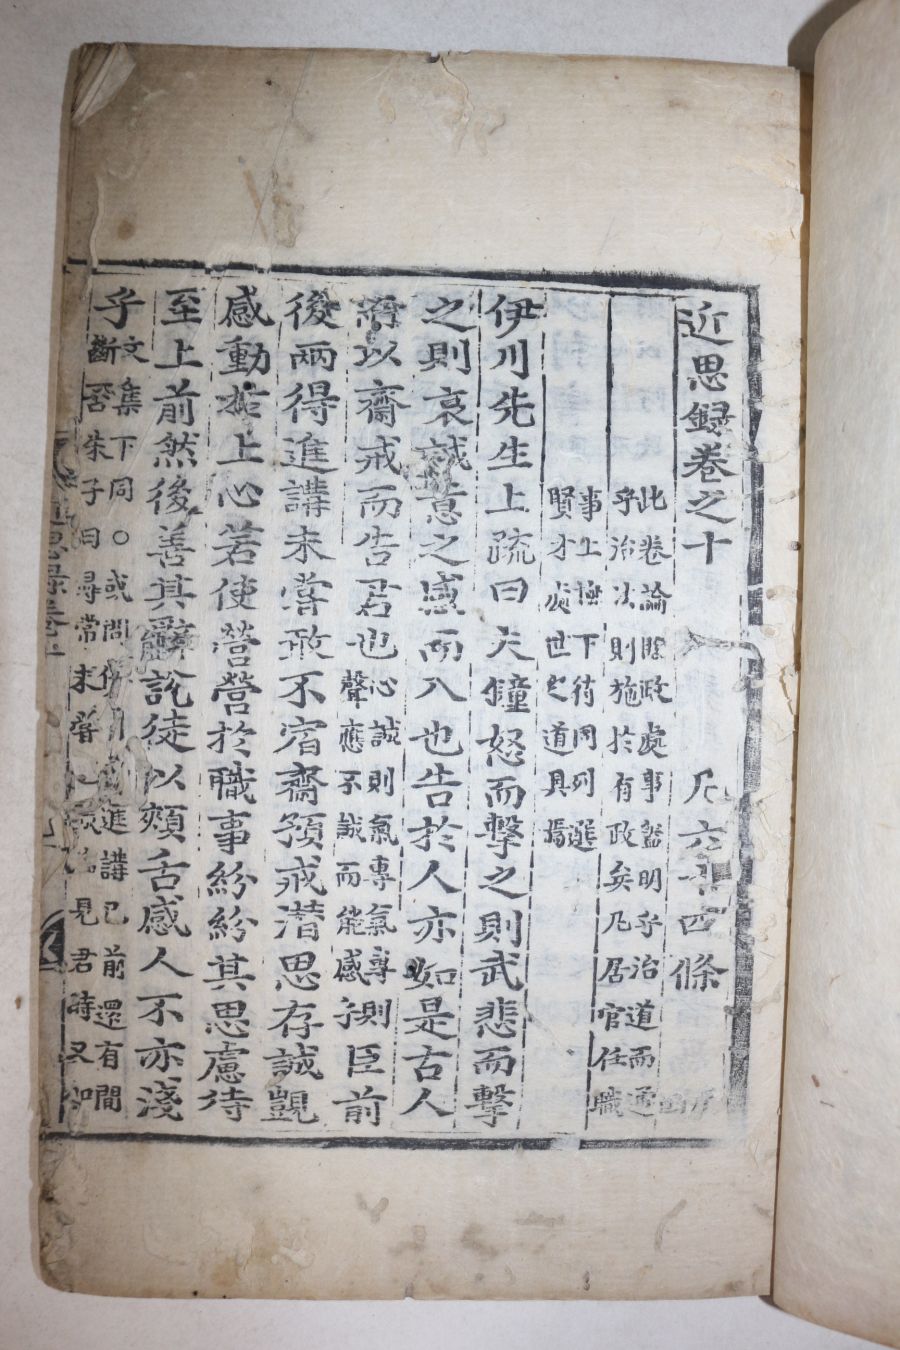 近思録卷之十 凡六十四條
此卷論臨政處事盖明乎治道而通
乎治法則施於有政矣凡居官任職
事上撫下待同列選
賢才處世之道具焉
伊川先生上疏曰夫鐘怒而擊之則武悲而擊
之則哀誠意之感而入也告於人亦如是古人
所以齋戒而告君也
心誠則氣專氣專則
聲應不誠而能感乎
臣前
後兩得進講未嘗敢不宿齋預戒潜思存誠覬
感動於上心若使營營於職事紛紛其思慮待
至上前然後善其辭說徒以頰舌感人不亦淺
乎
文集下同○或問伊川進講已前還有間
斷否朱子曰尋常未嘗見君時又如
近思録卷十